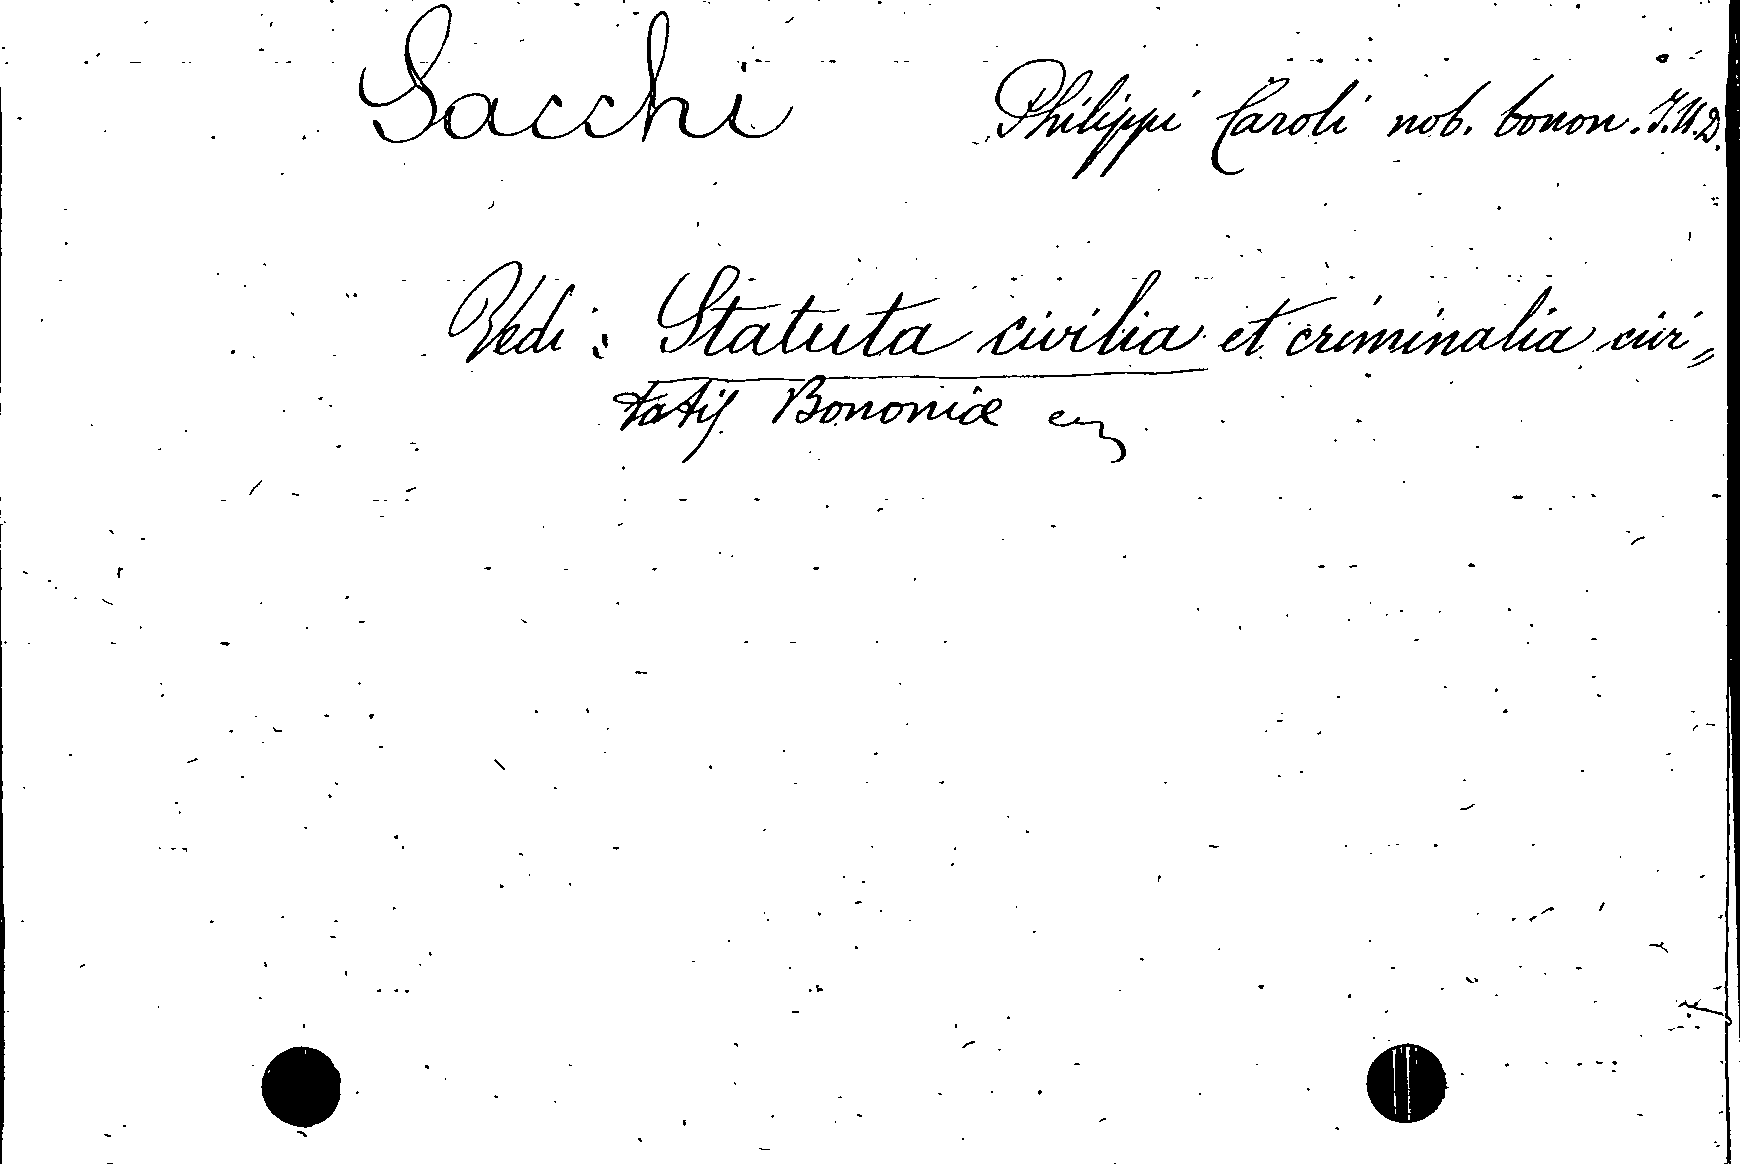 Sacchi Philippi Caroli nob. bonon. J.U.D.
Vedi: Statuta civilia et criminalia civi„
tatis Bononiæ